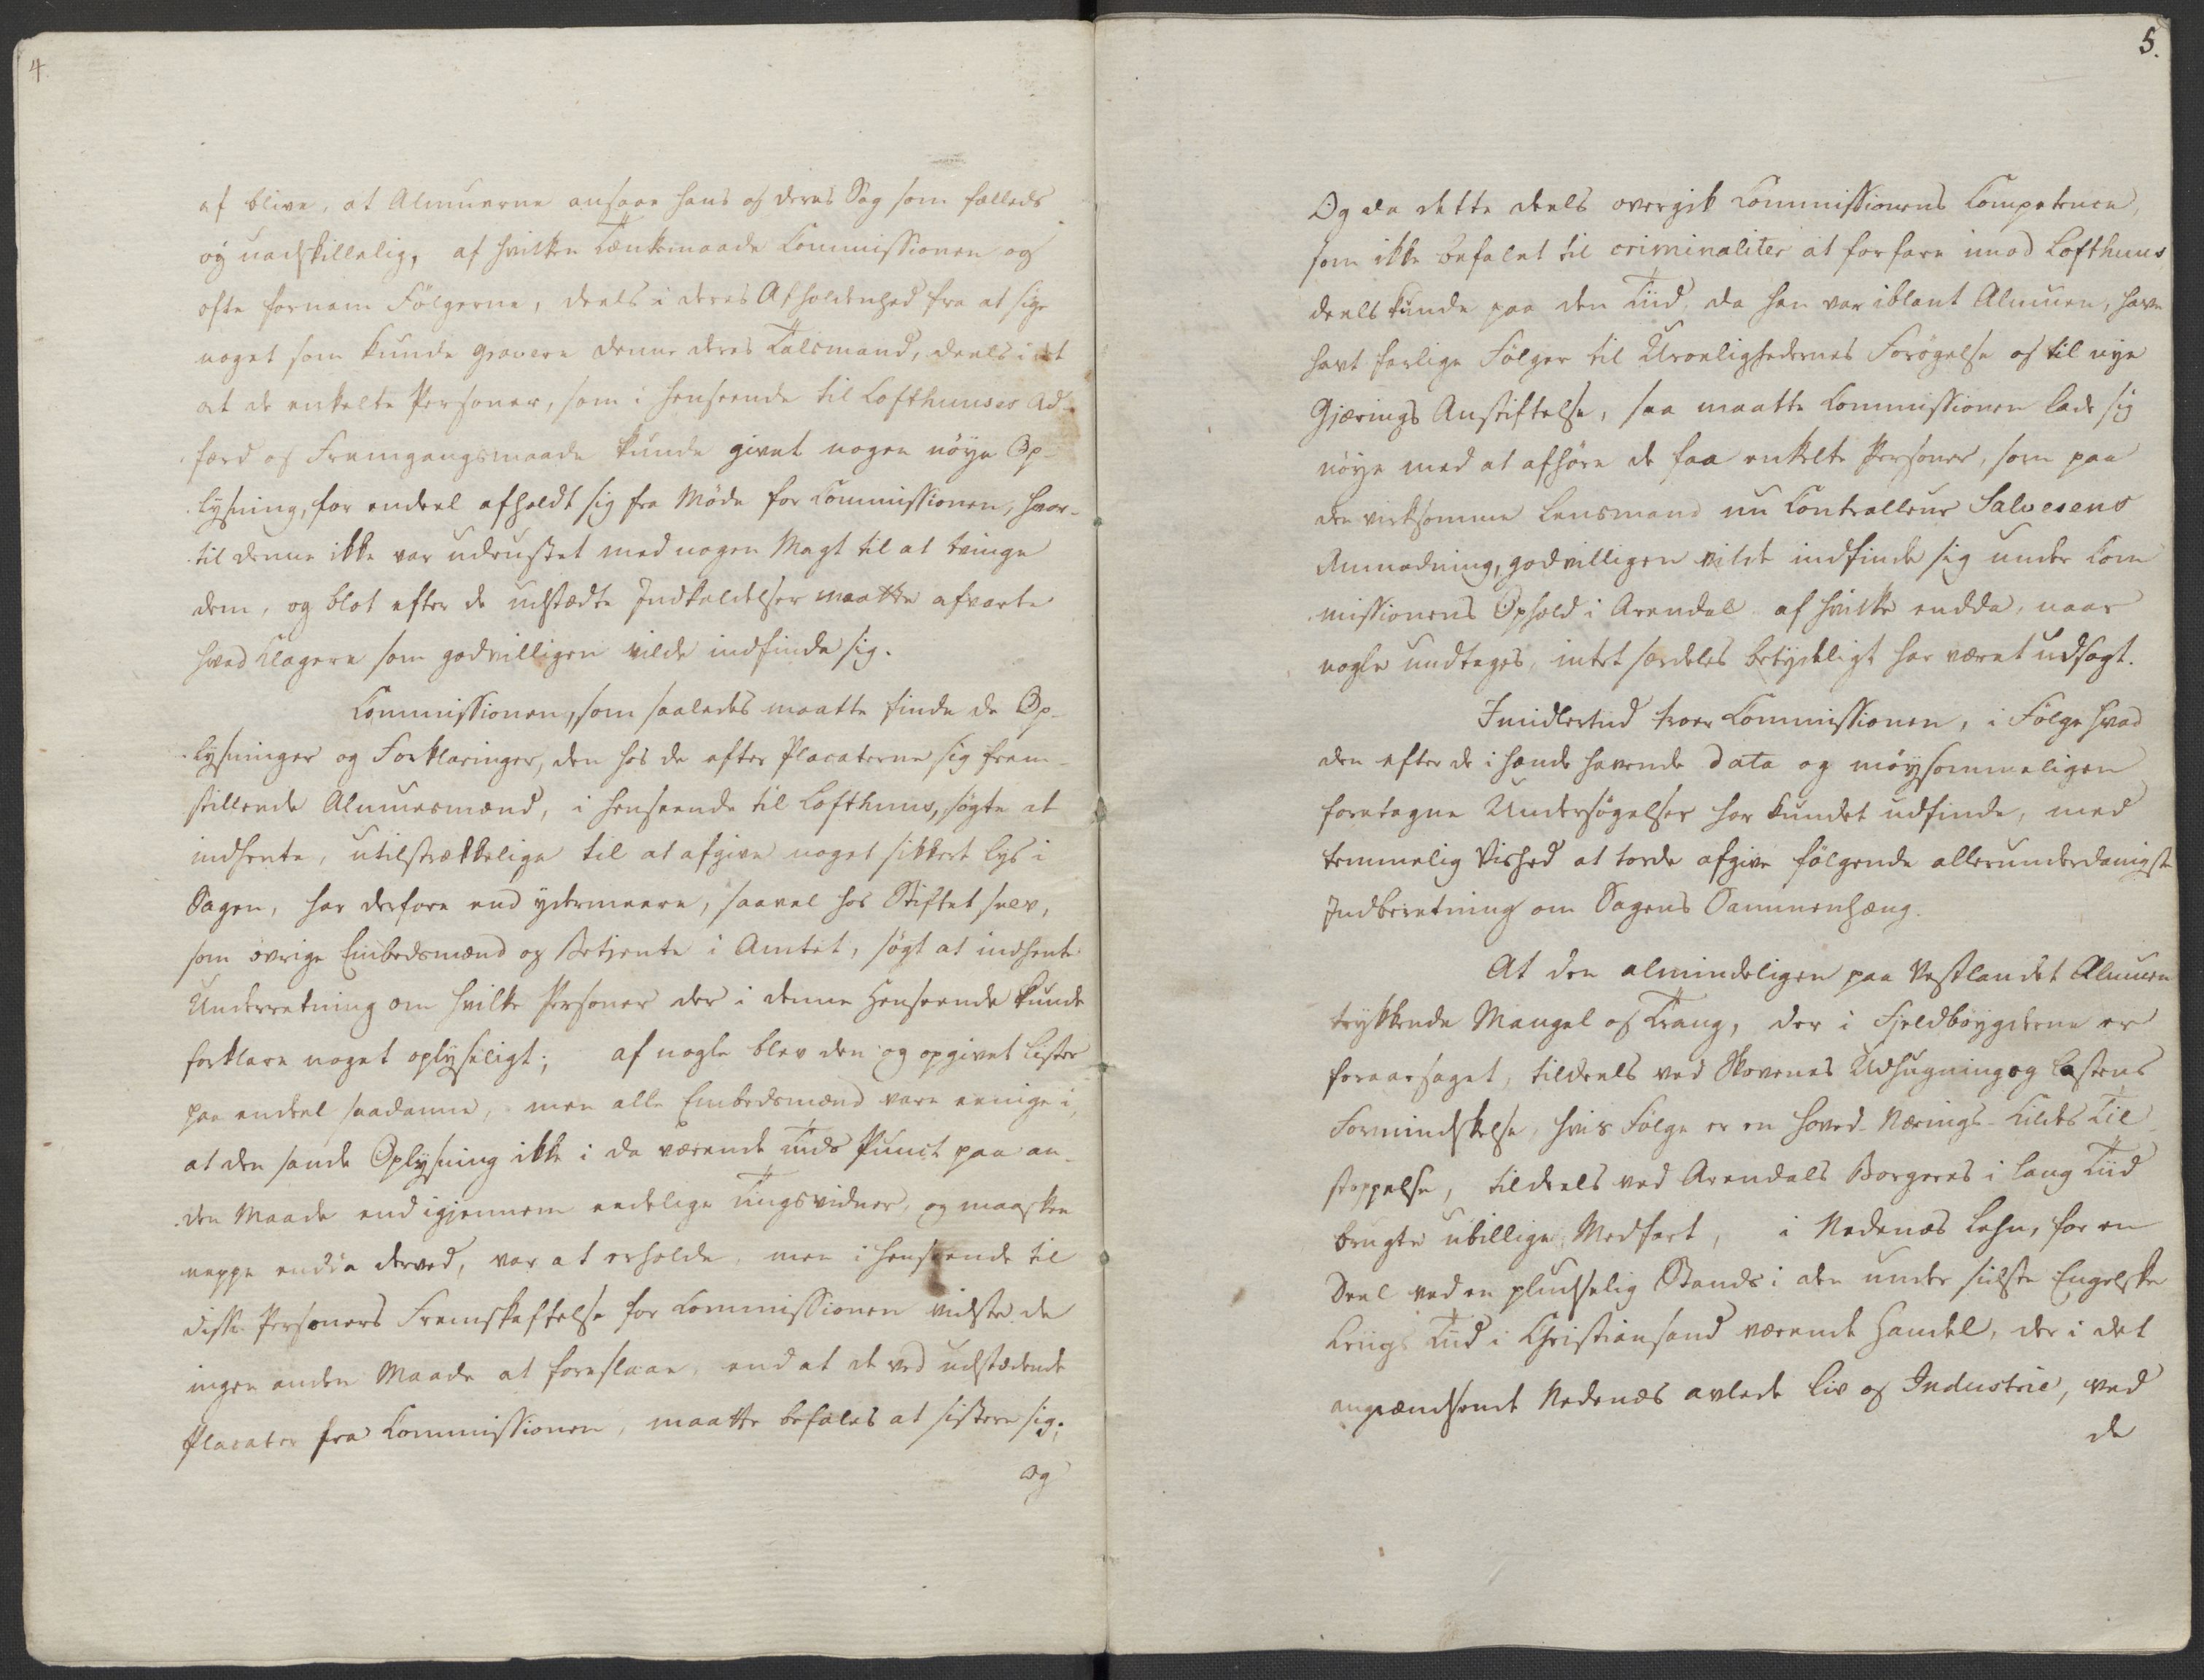 4
af blive, at Almuerne ansaae hans og deres Sag som fælleds
og uadskillelig, af hvilken Tænkemaade Commissionen og
ofte fornam Følgerne, deels i deres Afholdenhed fra at sige
noget som kunde gravere denne deres Talsmand, deels i at
at de enkelte Personer, som i henseende til Lofthuuses Ad-
færd og Fremgangsmaade kunde givet nogen nøye Op-
lysning, for endeel afholdt sig fra Møde for Commissionen, hvor-
til denne ikke var udrustet med nogen Magt til at tvinge
dem, og blot efter de udstædte Indkaldelser maatte afvarte
hvad Klagere som godvilligen vilde indfinde sig.
Commissionen, som saaledes maatte finde de Op-
lysninger og Forklaringer, den hos de efter Placaterne sig frem-
stillende Almuesmænd, i henseende til Lofthuus, søgte at
indhente, utilstrækkelige til at afgive noget sikkert Lys i
Sagen, har derfore end ydermeere, saavel hos Stiftet selv,
som øvrige Embedsmænd og Betjente i Amtet, søgt at indhente
Underretning om hvilke Personer der i denne Henseende kunde
forklare noget oplyseligt; af nogle blev den og opgivet Lister
paa endeel saadanne, men alle Embedsmænd vare eenige i,
at den sande Oplysning ikke i da værende Tids Punct paa an-
den Maade end igjennem eedelige Tingsvidner, og maaskee
neppe endda derved, var at erholde, men i henseende til
disse Personers Fremskaffelse for Commissionen vidste de
ingen anden Maade at foreslaae, end at de ved udstædende
Placater fra Commissionen, maatte befales at sistere sig;
Og
5.
Og da dette deels overgik Commissionens Competence,
som ikke befalet til criminaliter at forfare imod Lofthuus
deels kunde paa den Tiid, da han var iblant Almuen, have
havt farlige Følger til Uroelighedernes Forøgelse og til nye
Gjærings Anstiftelse, saa maatte Commissionen lade sig
nøye med at afhøre de faa enkelte Personer, som paa
den virksomme Lensmand nu Controlleur Salvesens
Anmodning, godvilligen vilde indfinde sig under Com
missionens Ophold i Arendal af hvilke endda, naar
nogle undtages, intet særdeles betydeligt har været udsagt.
Imidlertid troer Commissionen, i Følge hvad
den efter de i hænde havende Data og møysommeligen
foretagne Undersøgelser har kundet udfinde, med
temmelig Vished at torde afgive følgende allerunderdanigste
Indberetning om Sagens Sammenhæng.
At den almindeligen paa Vestlandet Almuen
trykkende Mangel og Trang, der i Fjeldbøygderne er
foraarsaget, tildeels ved Skovenes Udhugning og Lastens
Formindskelse, hvis Følge er en Hoved-Nærings-Kildes Til
stoppelse, tildeels ved Arendals Borgeres i lang Tiid
brugte ubillige Medfart, i Nedenæs Lehn, for en
Deel ved en pludselig Stands i den under sidste Engelske
Kriigs Tiid i Christiansand værende Handel, der i det
angrændsende Nedenæs avlede Liv og Industrie, ved
de